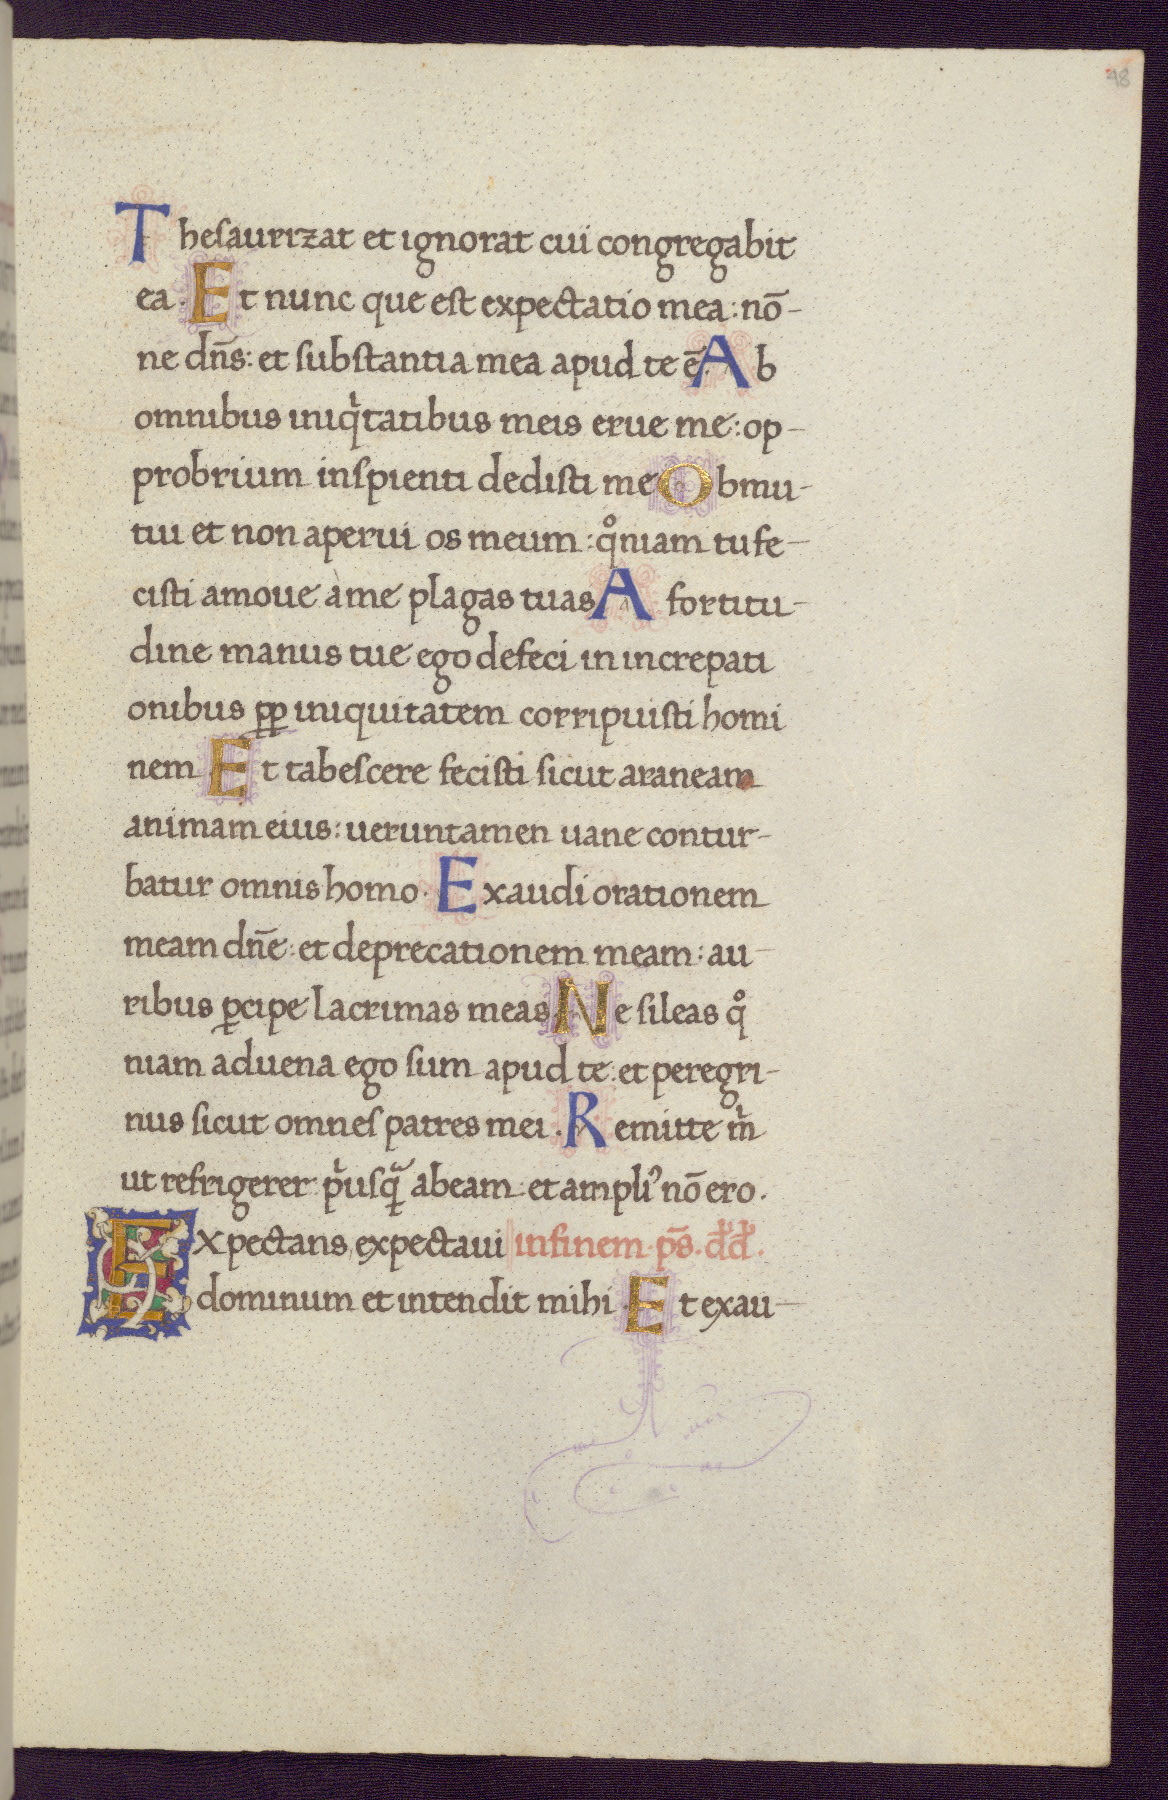 48
Thesaurizat et ignorat cui congregabit
ea. Et nunc que est expectatio mea: nō-
ne dn̄s: et substantia mea apud te ē. Ab
omnibus iniqͥtatibus meis erue me: op-
probrium inspienti dedisti me Obmu-
tui et non aperui os meum: qͦniam tu fe-
cisti amoue a me plagas tuas A fortitu-
dine manus tue ego defeci in increpati
onibus ꝓp iniquitatem corripuisti homi
nem Et tabescere fecisti sicut araneam
animam eius: ueruntamen uane contur-
batur omnis homo. Exaudi orationem
meam dn̄e: et deprecationem meam: au-
ribus ꝑcipe lacrimas meas Ne sileas qͦ
niam aduena ego sum apud te: et peregri-
nus sicut omnes patres mei. Remitte m̊
ut refrigerer pͥusqᷓ abeam: et ampliꝰ nō ero.
Expectans expectaui infinem. ps̄. dd.
dominum et intendit mihi. Et exau-